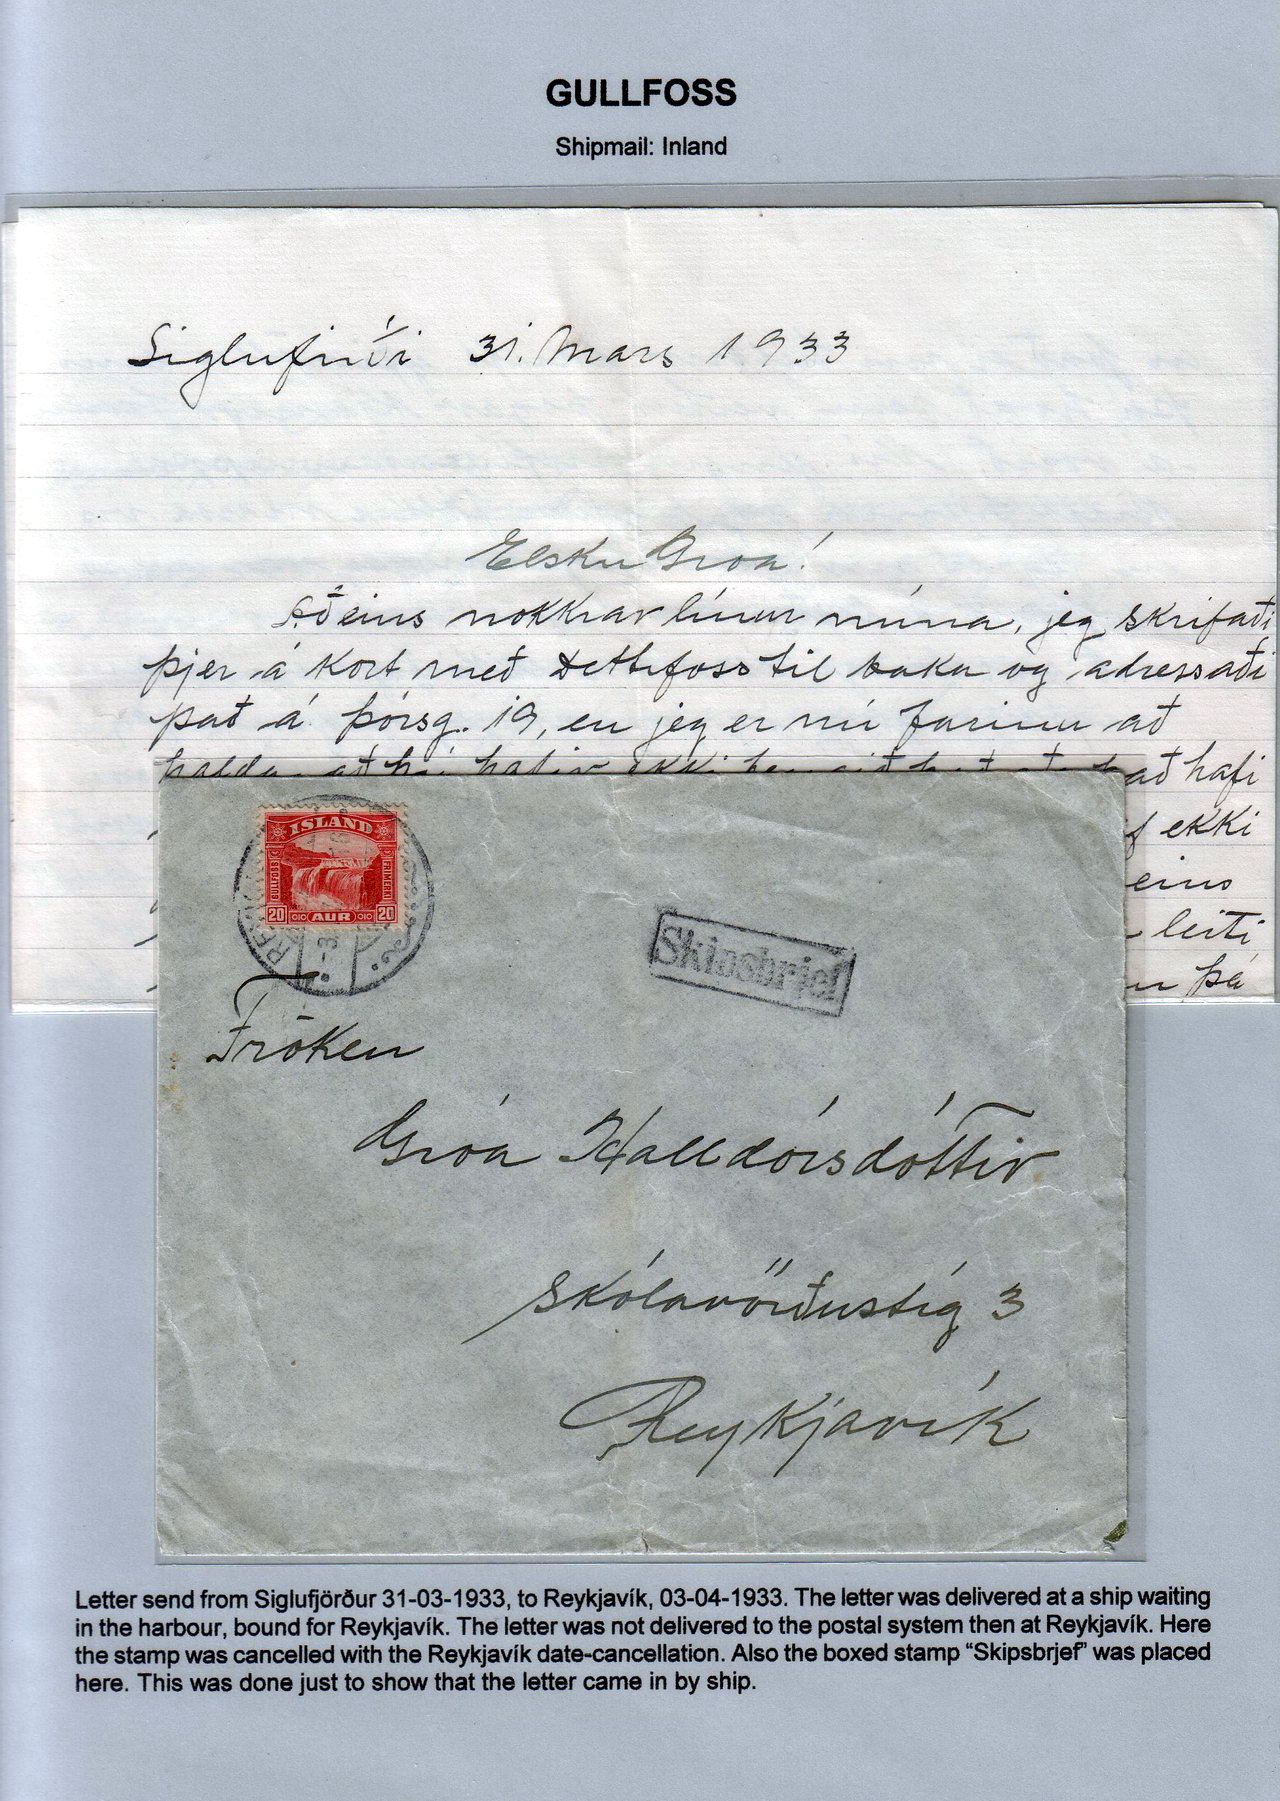 GULLFOSS
Shipmail: Inland
Siglufirði 31. Mars 1933
Elsku Gróa!
Aðeins nokkrar línur núna, jeg skrifaði
þjer á kort með Dettifoss til baka og adressaði
það á Þórsg. 19, en jeg er nú farinn að
halda að þú hafir ekki fengið það hafi
ekki
eins
leiti
þá
ÍSLAND
GULLFOSS
FRÍMERKI
20 AUR 20
Skipsbrjef
Fröken
Gróa Halldórsdóttir
Skólavörðustíg 3
Reykjavík
Letter send from Siglufjörður 31-03-1933, to Reykjavík, 03-04-1933. The letter was delivered at a ship waiting
in the harbour, bound for Reykjavík. The letter was not delivered to the postal system then at Reykjavík. Here
the stamp was cancelled with the Reykjavík date-cancellation. Also the boxed stamp “Skipsbrjef” was placed
here. This was done just to show that the letter came in by ship.